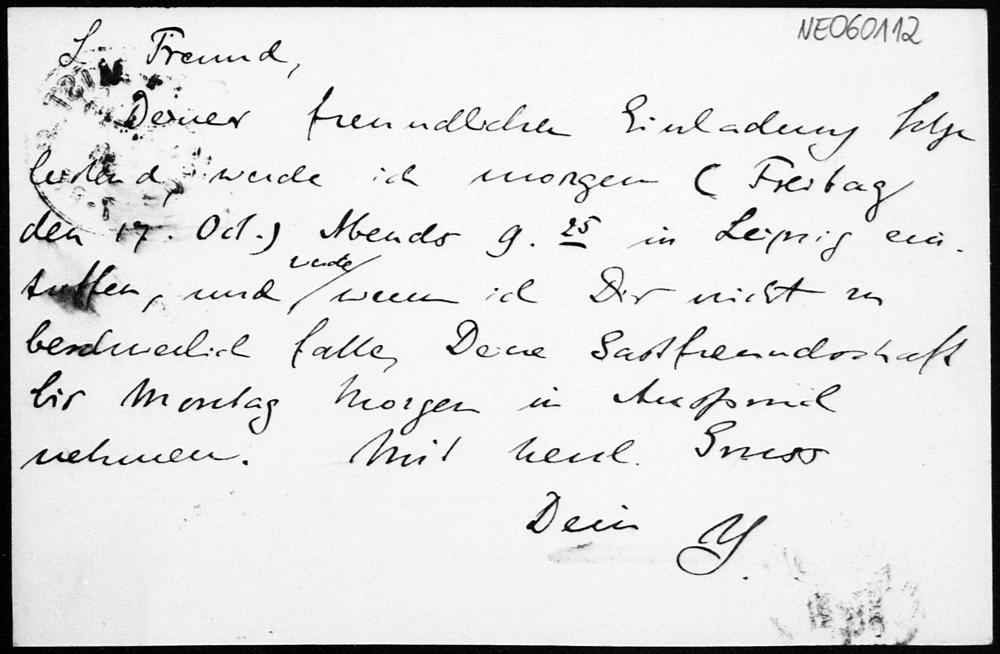 NE060112
L. Freund,
Deiner freundlichen Einladung folge
leistend, werde ich morgen (Freitag
den 17. Oct.) Abends 9.25 in Leipzig ein-
treffen, und
werde
wenn ich Dir nicht zu
beschwerlich falle, Deine Gastfreundschaft
bis Montag Morgen in Anspruch
nehmen. Mit herzl. Gruss
Dein Y.